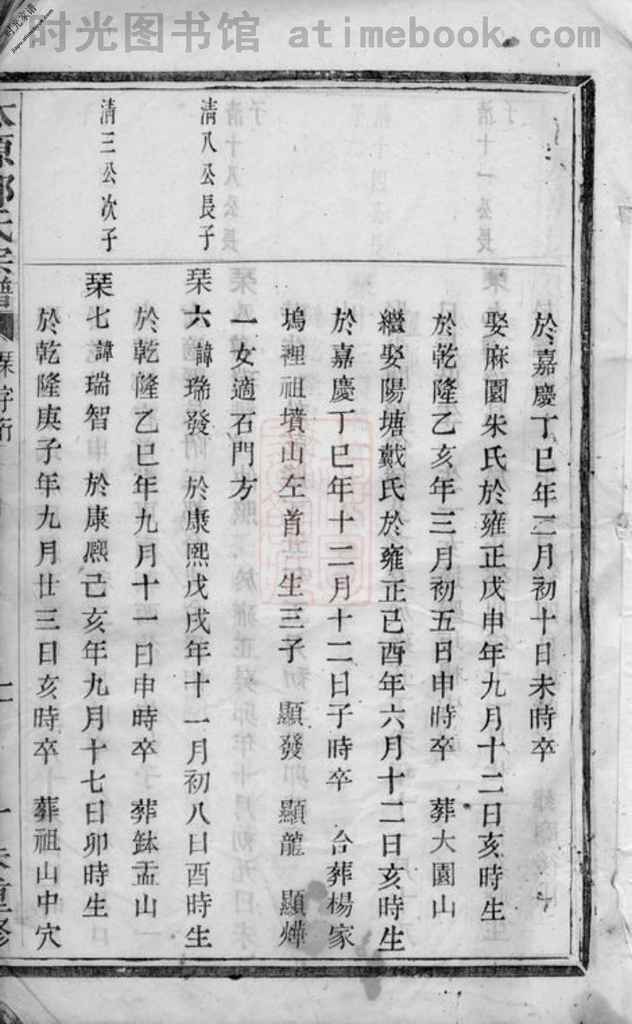 时光图书馆 atimebook.com
於嘉慶丁巳年二月初十日未時卒
娶麻園朱氏於雍正戊申年九月十二日亥時生
於乾隆乙亥年三月初五日申時卒 葬大園山
繼娶陽塘戴氏於雍正己酉年六月十二日亥時生
於嘉慶丁巳年十二月十二日子時卒 合葬楊家
塢裡祖墳山左首 生三子 顯發 顯龍 顯燁
一女適石門方
清八公長子
琹六諱瑞發 於康熙戊戌年十一月初八日酉時生
於乾隆乙巳年九月十一日申時卒 葬鉢盂山一
清三公次子
琹七諱瑞智 於康熈己亥年九月十七日卯時生
於乾隆庚子年九月廿三日亥時卒 葬祖山中穴
氏宗譜